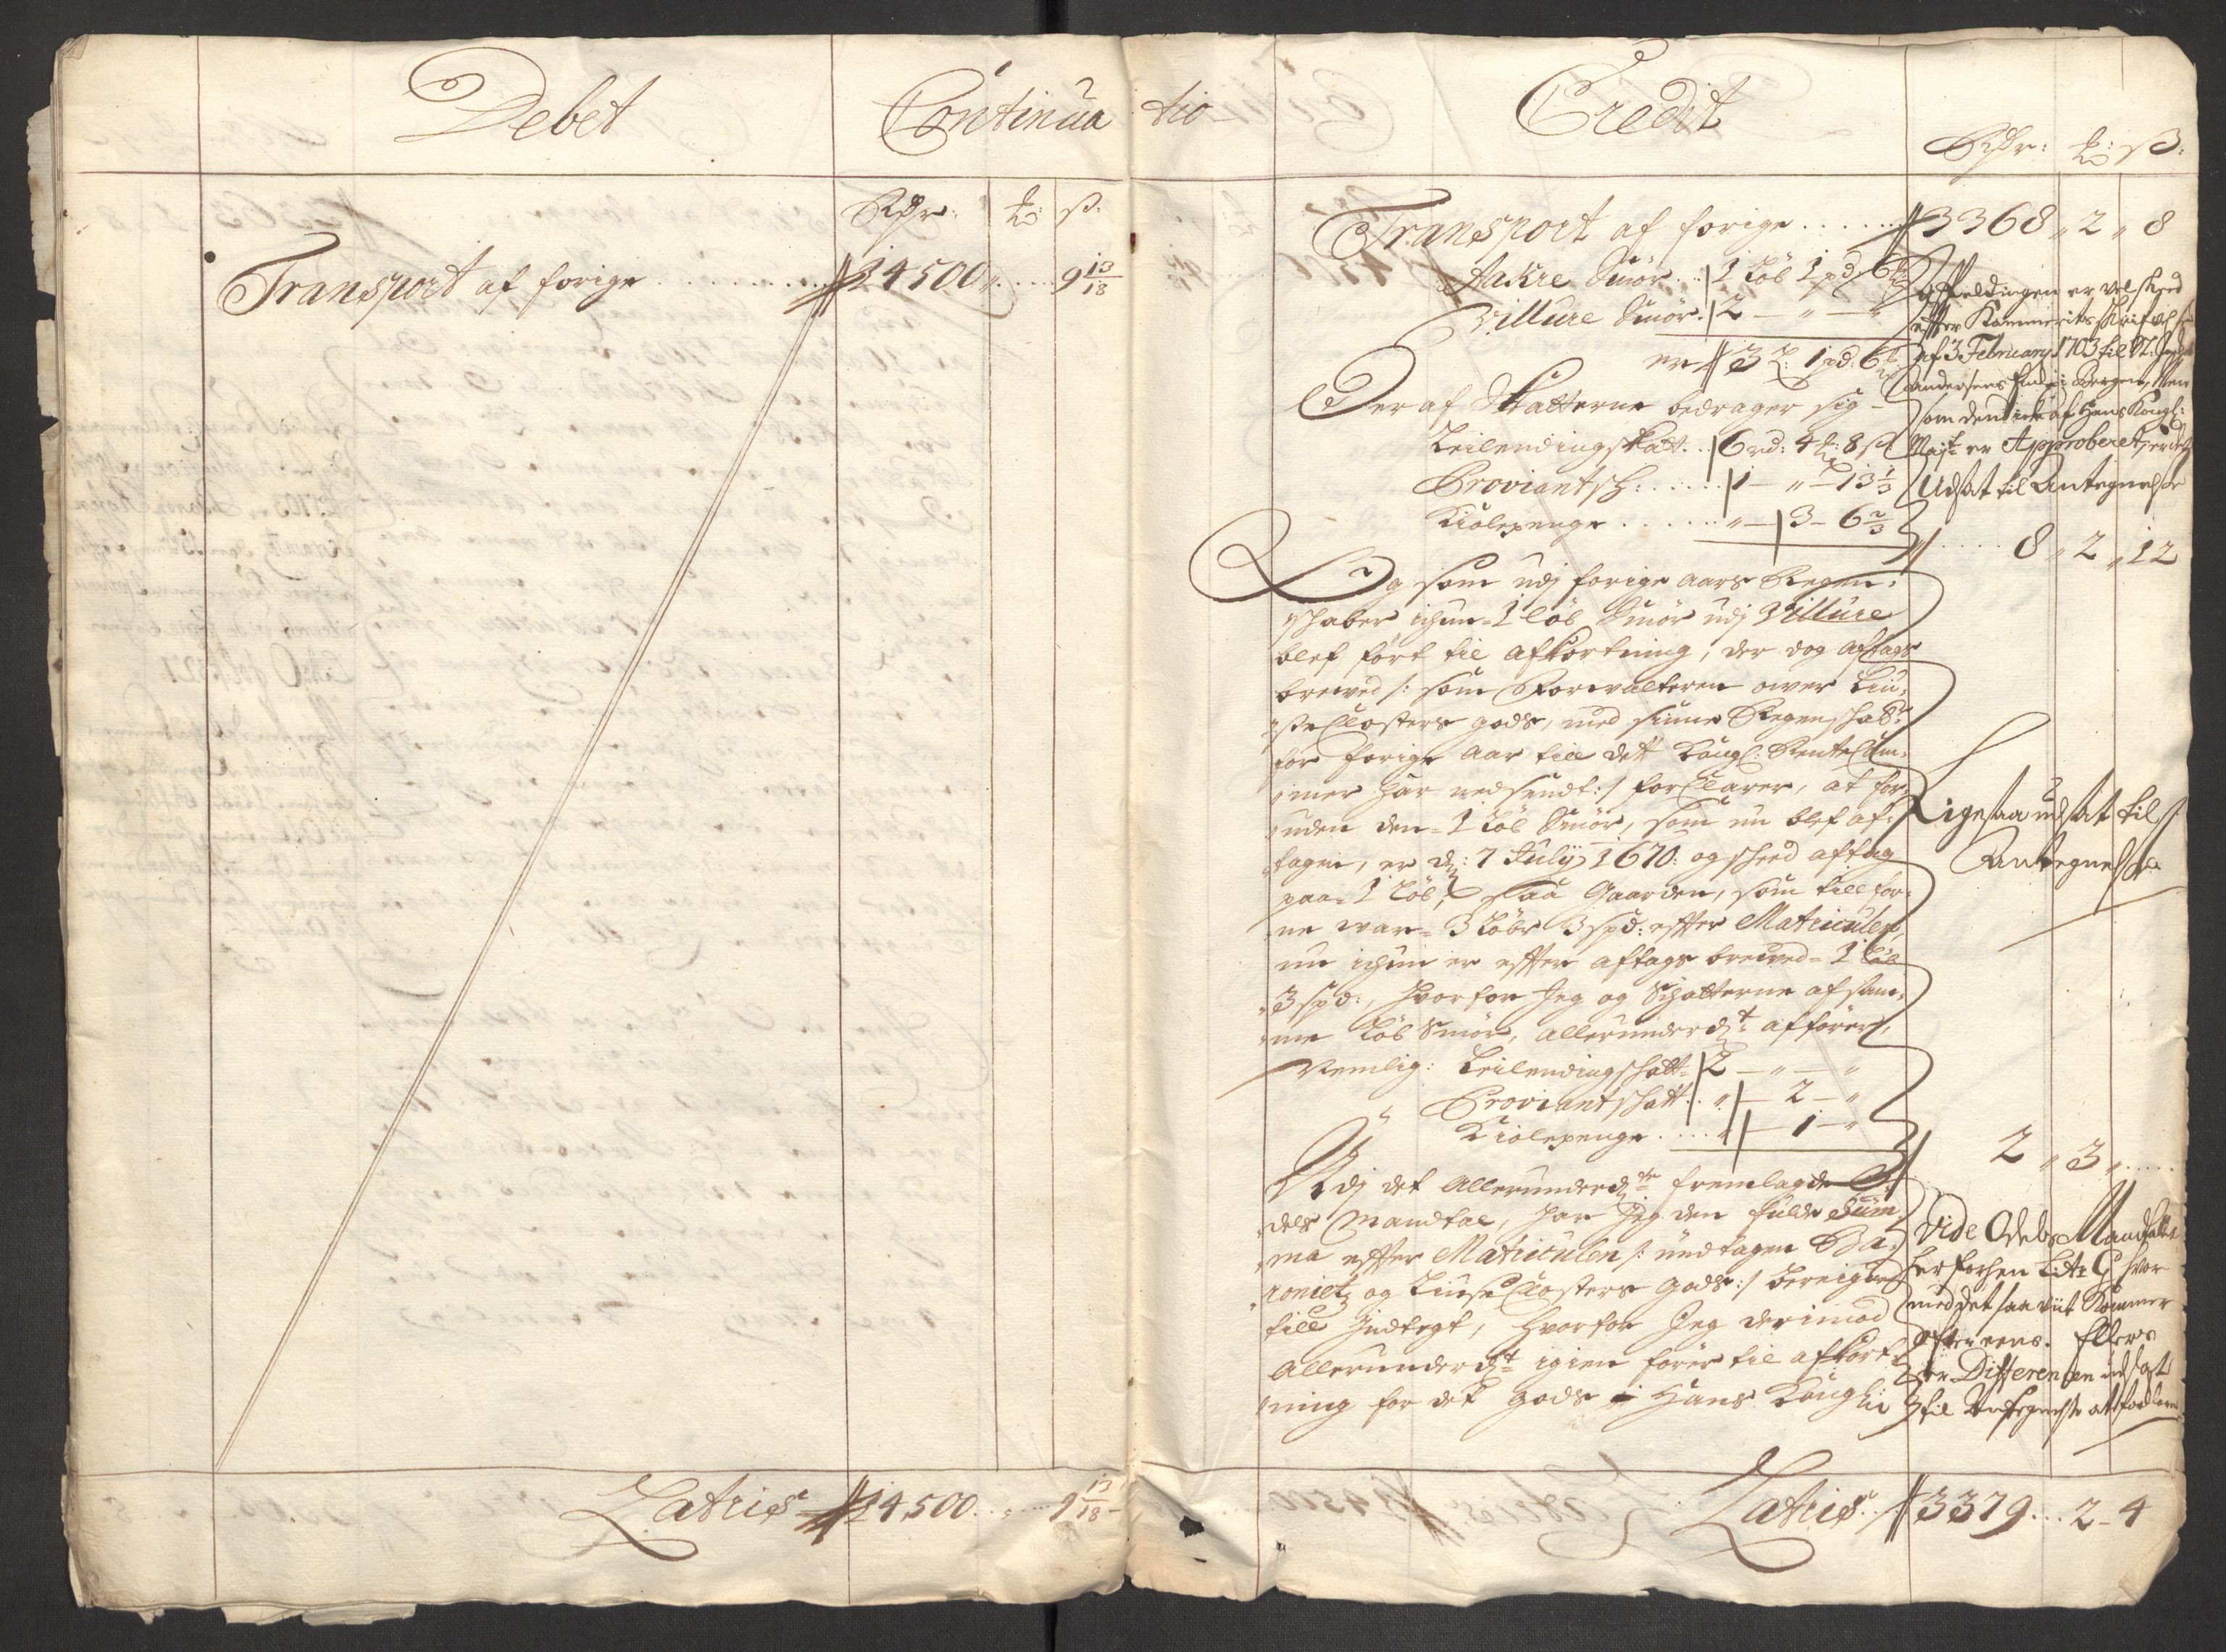 Debet
Continua tio
Credit
Rdr: ₻: ß.
Transport af forige . . . . . . . . . 14500 „ . . . 9 13/18
Latris 14500 . . „ . . . 9 13/18
Rdr: ₻: ß:
Transport af forige . . . . . 3368 „ 2 „ 8
Aakre Smör . . 1 Löb 1 pd 6
Villure Smör . 2 — „ — „
er 3 L: 1 pd: 6
Deraf Skatterne bedrager sig —
Leilendingskatt . . 6 rd: 4 ₻: 8 ß
Proviantsk: . . . . . 1 — „ — 13 1/3
Kiölepenge . . . . . . „ — 3 — 6 2/3
. . . . . 8 „ 2 „ 12
Affeldingen er vel skeed
efter Kammerits skrifvelse
af 3 February 1703 til
Andersens i Bergen, Men
som dend icke af Hans Kongl:
Majt er Approberet, er det
Udsat til Antegnelse
Og som udj forige aars Regen:
skaber ichun 1 Löb Smör udj Villure
blef fört til afkortning, der dog aftags
breved /: som Forvalteren over Liu:
se Closters gods, med sinne Regenskaber
for forige aar till det Kongl: Rente Cam:
mer har nedsendt :/ forklarer, at for:
uden den 1 Löb Smör, som nu blef af:
tagen, er d: 7 July 1670: og skeed aftag
paa 1 Löb, saa Gaarden, som till for:
ne var 3 Löbr 3 spd: efter Matriculen,
nu ichun er efter aftags breved 1 Löb
3 spd:, hvorfor Jeg og Schatterne af sam:
me Löb Smör, allerunderdt afförer,
Nemlig: Leilendingschatt 2 — „ — „
Proviantschatt . . „ — 2 — „
Kiölepenge . . . . „ — 1 — „
2 „ 3 „ . . . .
Ligesaa udsat til
Antegnelse
Udj det Allerunderdste fremlagde O
dels Mandtal, har Jeg den fulde Sum
ma efter Matriculen /: undtagen Ba:
roniet og Liuse Closters gods :/ bereignet
till Indtegt, hvorfor Jeg derimod
Allerunderdt igien förer til afkort
ning for det gods i Hans Kongli
Vide Odels Mandtallet
herforhen Litr G hvor
med det saa viit Kommer
ofver eens. Ellers
er Differencen udsat
til Antegnelse at forklare
Latris . 3379 . . . 2 — 4